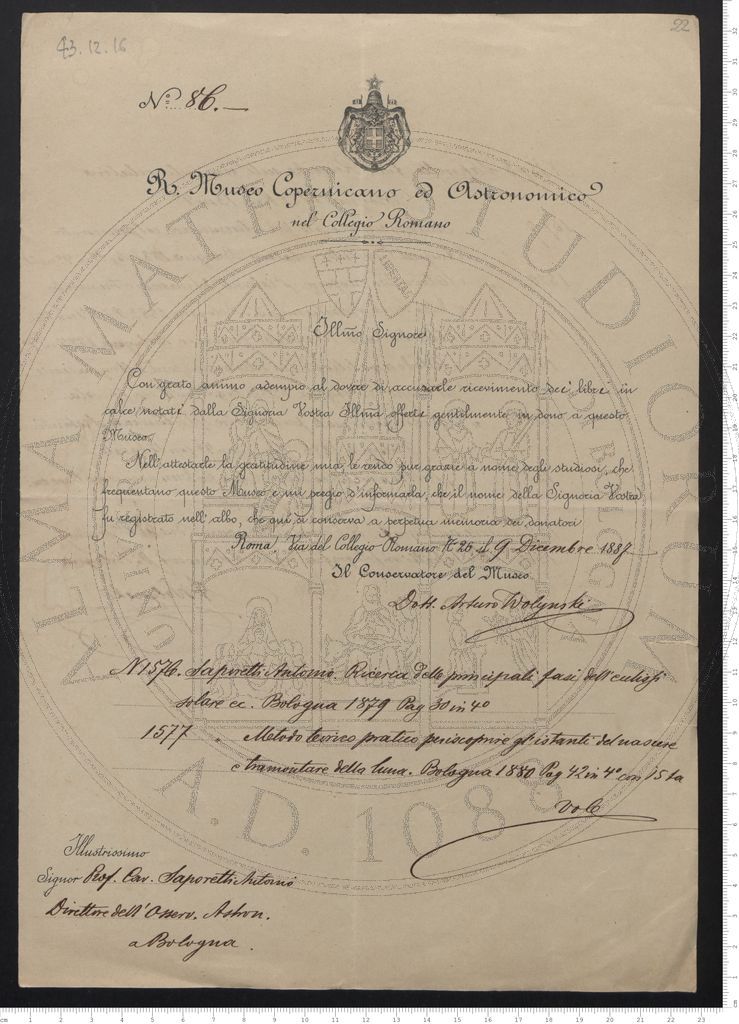 43.12.16
22
N.º 86.
R. Museo Copernicano ed Astronomico
nel Collegio Romano
Illm̃o Signore
Con grato animo adempio al dovere di accusarle ricevimento dei libri in
calce notati dalla Signoria Vostra Illm̃a offerti gentilmente in dono a questo
Museo.
Nell'attestarle la gratitudine mia, le rendo pur grazie a nome degli studiosi, che
frequentano questo Museo e mi pregio d'informarla, che il nome della Signoria Vostra
fu registrato nell'albo, che qui si conserva a perpetua memoria dei donatori
Roma, Via del Collegio Romano N. 26 il 9 Dicembre 1887
Il Conservatore del Museo
Dott. Arturo Wolynski
N 1576. Saporetti Antonio. Ricerca delle principali fasi dell'eclissi
solare ec. Bologna 1879 Pag 30 in 4º
1577 " Metodo teorico pratico per iscoprire gl'istanti del nascere
e tramontare della luna. Bologna 1880 Pag 42 in 4º con 15 ta
vole
Illustrissimo
Signor Prof. Cav. Saporetti Antonio
Direttore dell'Osserv. Astron.
a Bologna.
ALMA MATER STUDIORUM
A.D. 1088